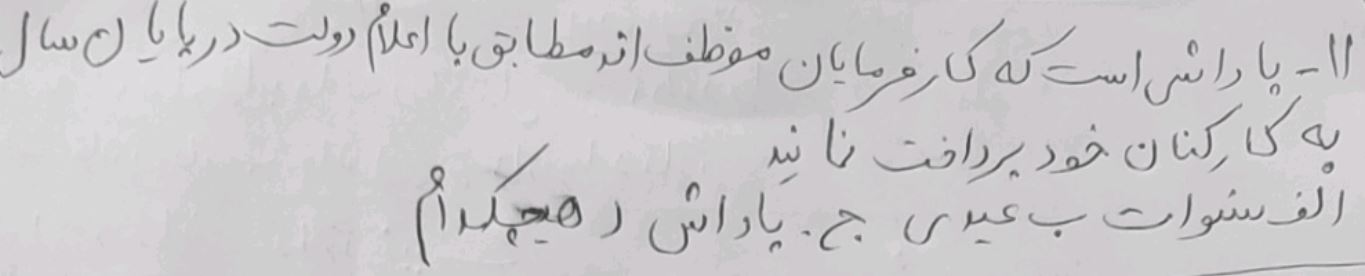 ۱۱- پاداشی است که کارفرمایان موظف اند مطابق با اعلام دولت در پایان سال
به کارکنان خود پرداخت نمایند
الف سنوات ب عیدی ج. پاداش د هیچکدام